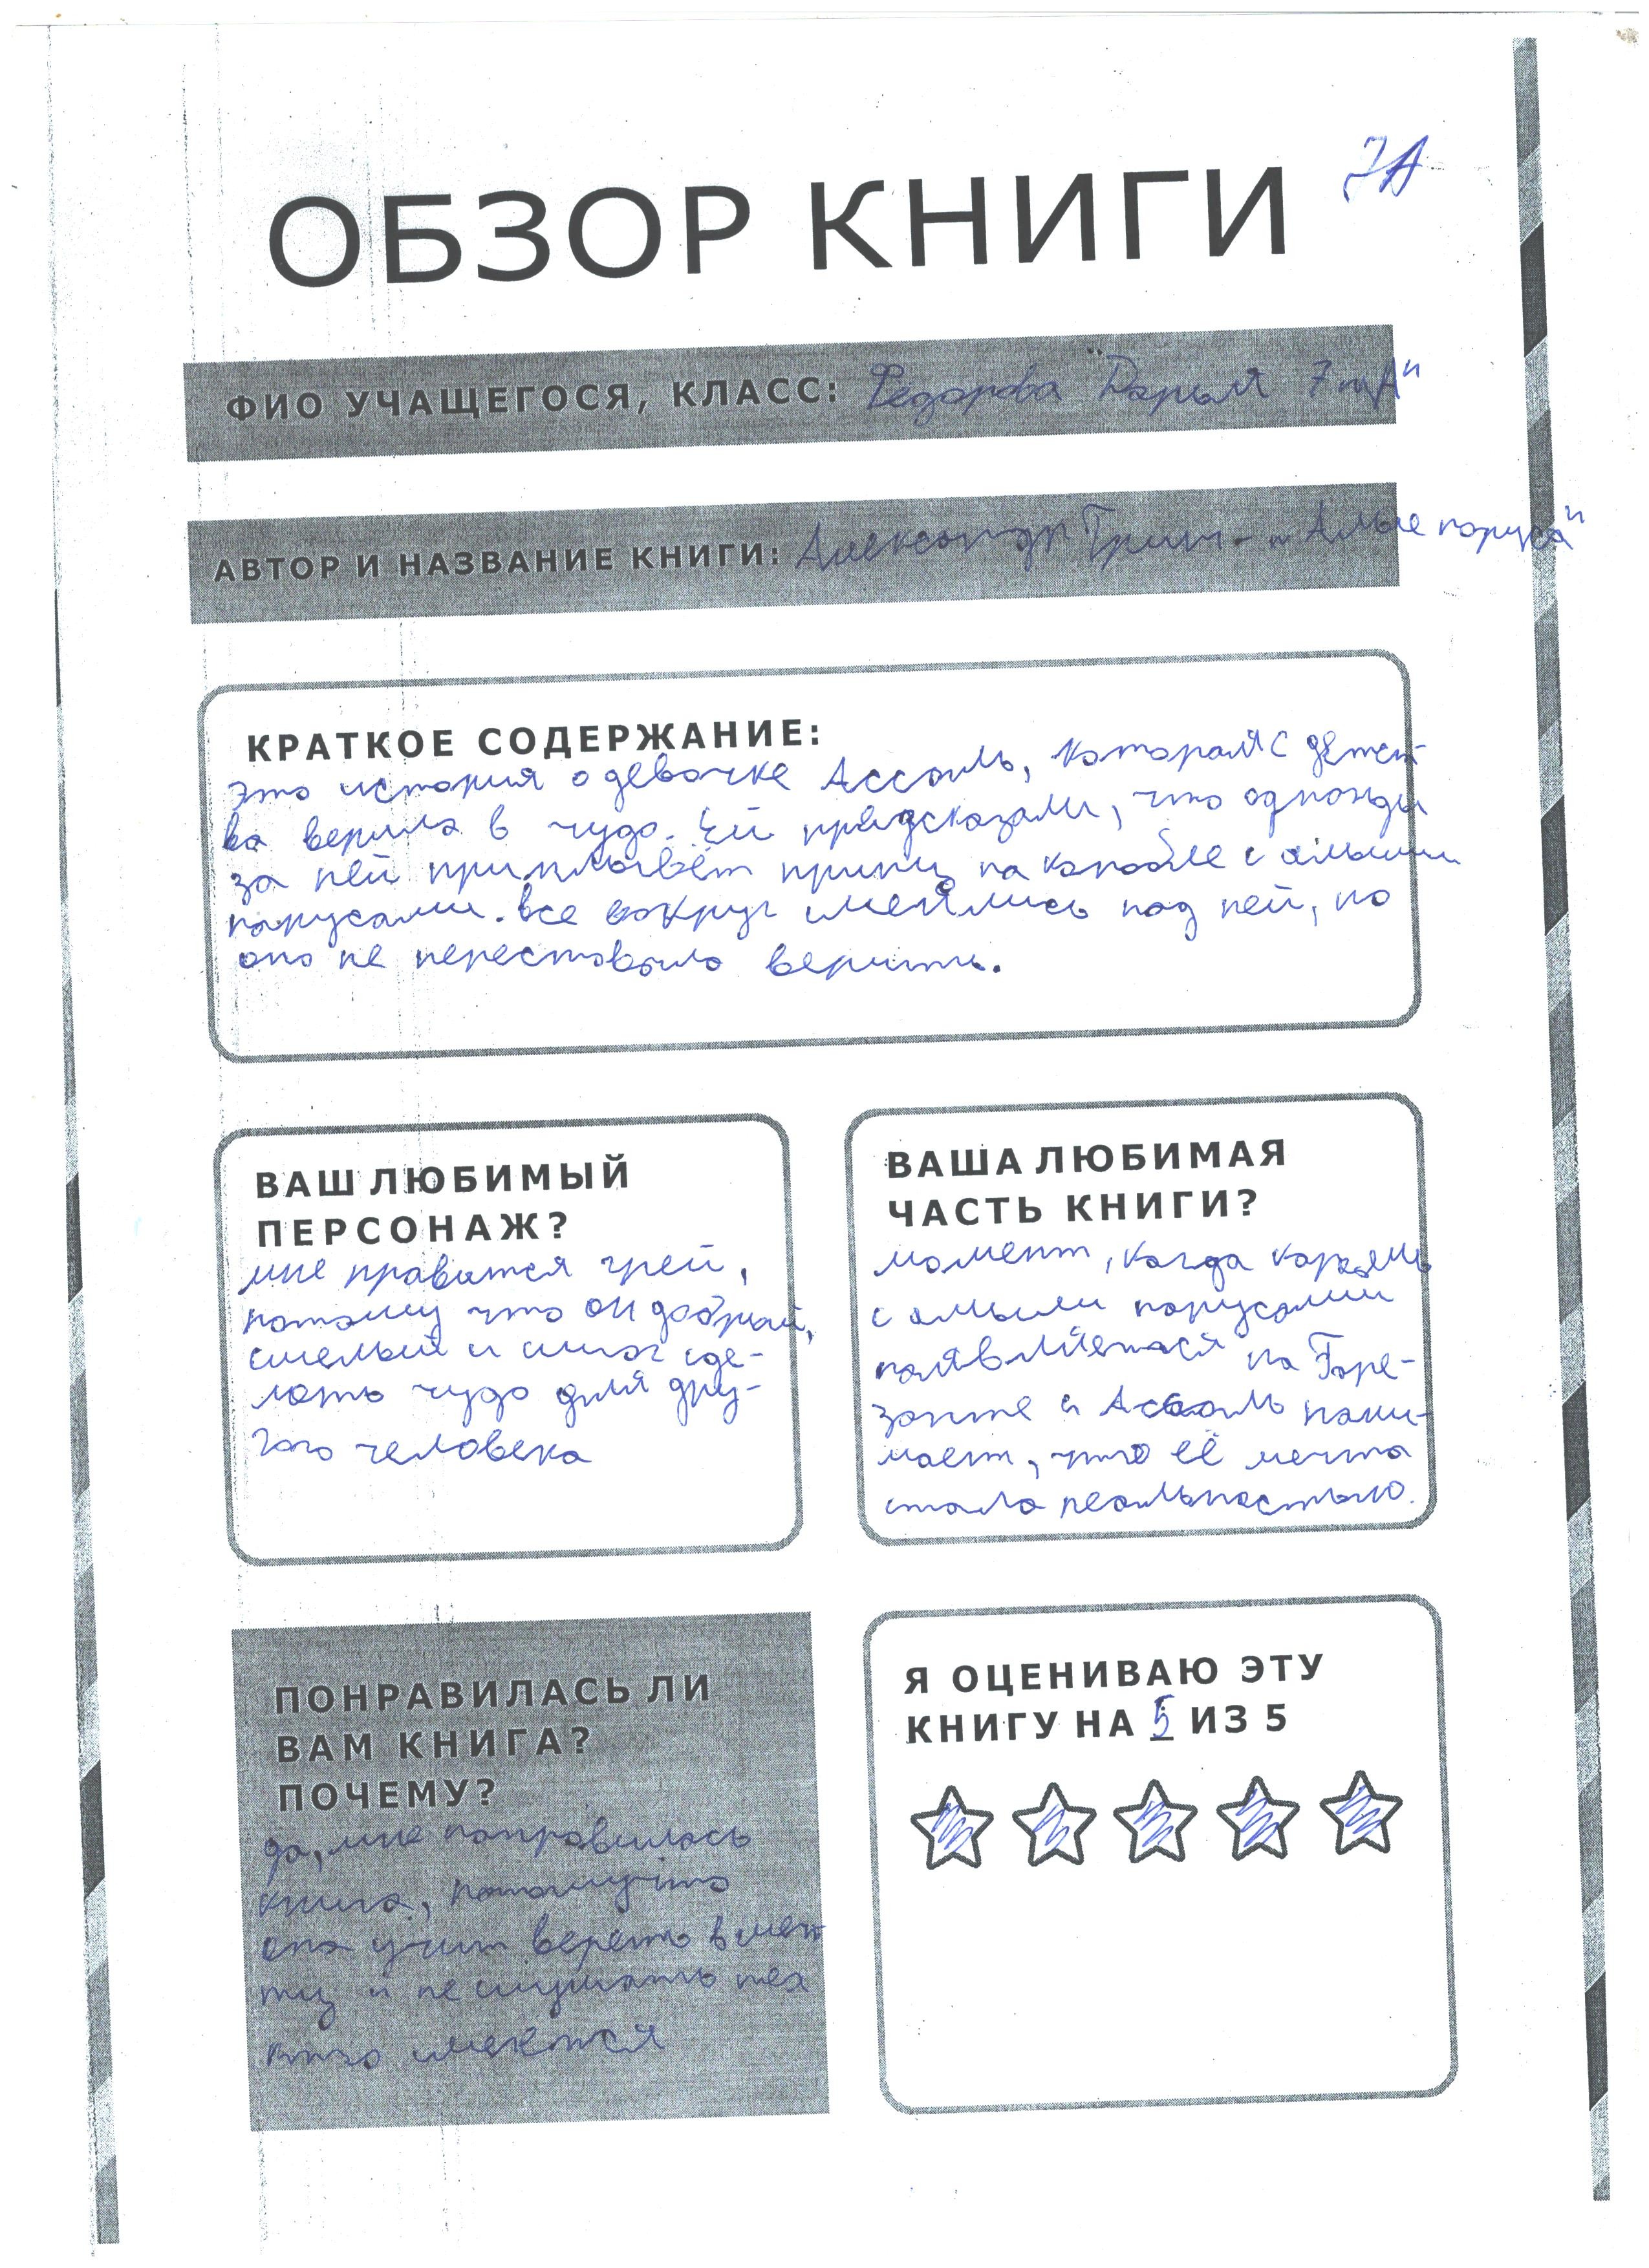 7А
ОБЗОР КНИГИ
ФИО УЧАЩЕГОСЯ, КЛАСС: Федорова Дарья 7 "А"
АВТОР И НАЗВАНИЕ КНИГИ: Александр Грин - "Алые паруса"
КРАТКОЕ СОДЕРЖАНИЕ:
Это история о девочке Ассоль, которая с детст-
ва верила в чудо. Ей предсказали, что однажды
за ней приплывёт принц на корабле с алыми
парусами. все вокруг смеялись над ней, но
она не переставала верить.
ВАШ ЛЮБИМЫЙ
ПЕРСОНАЖ?
мне нравится грей,
потому что он добрый,
смелый и смог сде-
лать чудо для дру-
гого человека
ВАША ЛЮБИМАЯ
ЧАСТЬ КНИГИ?
момент, когда корабль
с алыми парусами
появляется на Горе-
зонте и Ассоль пони-
мает, что её мечта
стала реальностью.
ПОНРАВИЛАСЬ ЛИ
ВАМ КНИГА?
ПОЧЕМУ?
да, мне понравилась
книга, потомучто
она учит верить в меч
ту и не слушать тех
кто смеется
Я ОЦЕНИВАЮ ЭТУ
КНИГУ НА 5 ИЗ 5